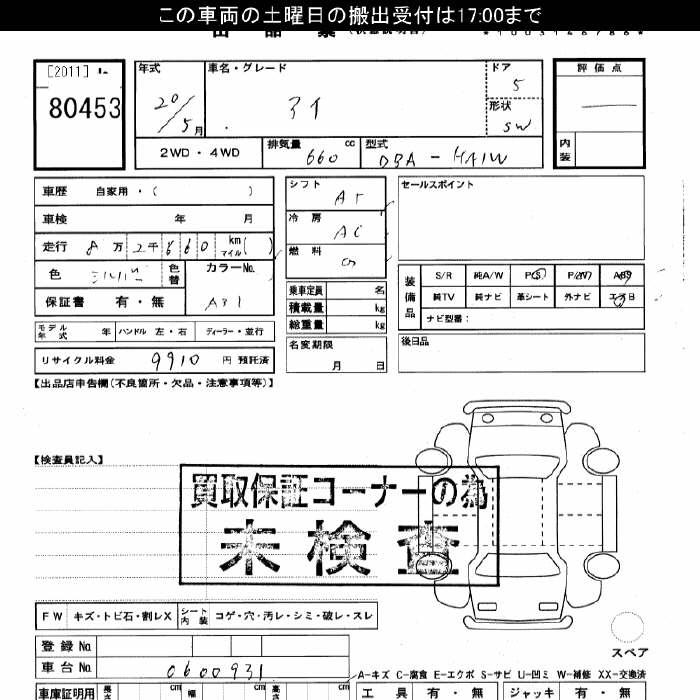 この車両の土曜日の搬出受付は17:00まで
[2011]
80453
年式
20/5月
車名・グレード
アイ
ドア
5
形状
SW
評価点
内装
2WD・4WD
排気量 660 cc
型式 DBA-HA1W
車歴 自家用・( )
車検 年 月
走行 8万2千660 km マイル( )
色 シルバー 色替
カラーNo. A31
保証書 有・無
シフト AT
冷房 AC
燃料 G
乗車定員 名
積載量 kg
総重量 kg
セールスポイント
装備品
S/R 純A/W P/S P/W ABS
純TV 純ナビ 革シート 外ナビ エアB
ナビ型番:
モデル年式 年 ハンドル 左・右 ディーラー・並行
名変期限 月 日
後日品
リサイクル料金 9910 円 預託済
【出品店申告欄(不良箇所・欠品・注意事項等)】
【検査員記入】
買取保証コーナーの為
未検査
FW キズ・トビ石・割レX シート内装 コゲ・穴・汚レ・シミ・破レ・スレ
スペア
登録No.
車台No. 0600931
A-キズ C-腐食 E-エクボ S-サビ U-凹ミ W-補修 XX-交換済
車庫証明用 長さ cm 幅 cm 高さ cm
工具 有・無 ジャッキ 有・無